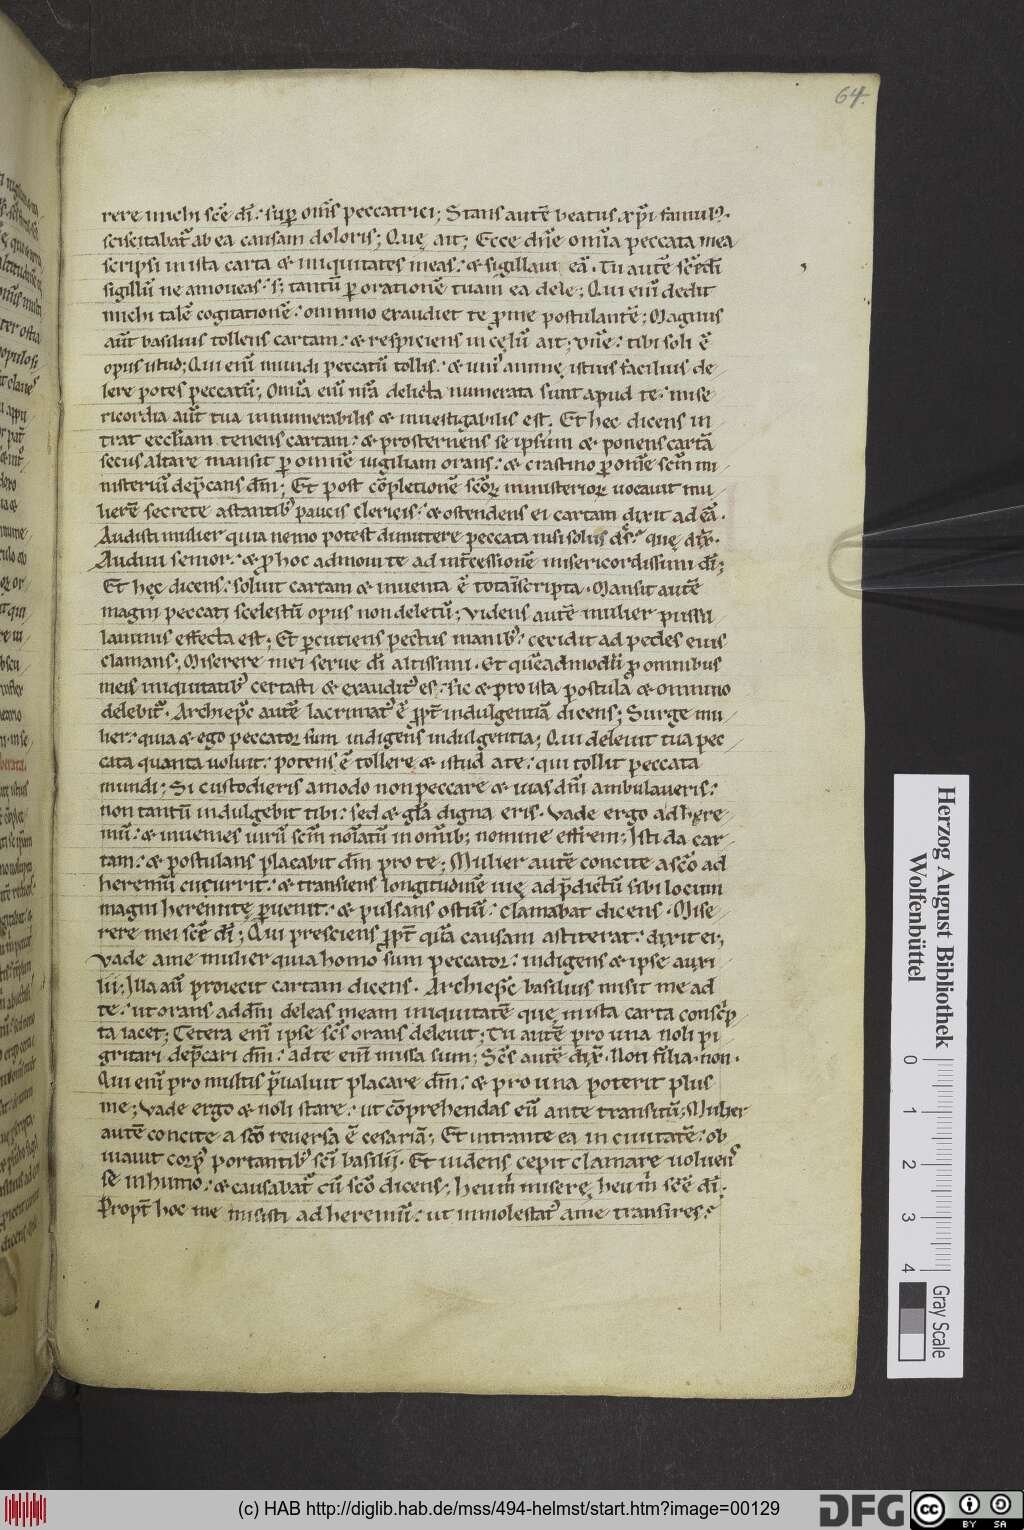 64.
rere michi sc̄e dī. sup om̄s peccatrici; Stans autē beatus xp̄i famulꝰ.
sciscitabat̄ ab ea causam doloris; Quę ait; Ecce dn̄e om̄ia peccata mea
scripsi in ista carta & iniquitates meas. & sigillaui eā. Tu autē sc̄e dī
sigillū ne amoueas. s; tantū ꝑ orationē tuam ea dele; Qui eni̅ dedit
michi talē cogitationē. omnino exaudiet te ꝓ me postulantē; Magnus
aūt basilius tollens cartam. & respiciens in cęlū ait; Dn̄e. tibi soli ē
opus istud; Qui eni̅ mundi peccatū tollis. & uniꝰ animę istius facilius de
lere potes peccatū; Om̄ia eni̅ nr̄a delicta numerata sunt apud te. mise
ricordia aūt tua innumerabilis & inuestigabilis est. Et hec dicens in
trat eccłiam tenens cartam. & prosternens se ipsum & ponens cartā
secus altare mansit ꝑ omnē uigiliam orans. & crastino ꝑ om̄e sc̄m mi
nisteriū dep̄cans dn̄m; Et post cōpletionē sc̄oꝝ ministerioꝝ uocauit mu
lierē secrete astantibꝰ paucis clericis. & ostendens ei cartam dixit ad eā.
Audisti mulier quia nemo potest dimittere peccata nisi solus ds̄. quę dix̄.
Audiui senior. & ꝓ hoc admoui te ad int̄cessionē misericordissimi dī;
Et hęc dicens. soluit cartam & inuenta ē tota īscripta. Mansit autē
magni peccati scelestū opus non deletū; Videns autē mulier pusilli
lanimis effecta est; Et ꝑcutiens pectus manibꝰ. cecidit ad pedes eius
clamans; Miserere mei serue dī altissimi. Et quēadmodū ꝓ omnibus
meis iniquitatibꝰ certasti & exauditꝰ es. sic & pro ista postula & omnino
delebit̄. Archiep̄c autē lacrimatꝰ ē ꝓpt̄ indulgentiā dicens; Surge mu
lier. quia & ego peccator sum indigens indulgentia; Qui deleuit tua pec
cata quanta uoluit. potens ē tollere & istud a te. qui tollit peccata
mundi; Si custodieris amodo non peccare & uias dn̄i ambulaueris.
non tantū indulgebit tibi. sed & gła digna eris. Vade ergo ad here
mū. & inuenies uirū sc̄m nōiatū in om̄ib; nomine effrem; Isti da car
tam. & postulans placabit dn̄m pro te; Mulier autē concite a sc̄o ad
heremū cucurrit. & transiens longitudinē uię ad p̄dictū sibi locum
magni heremitę ꝑuenit. & pulsans ostiū. clamabat dicens. Mise
rere mei sc̄e dī; Qui presciens ꝓpt̄ quā causam astiterat. dixit ei;
Vade a me mulier quia homo sum peccator. indigens & ipse auxi
lii; Illa aūt proiecit cartam dicens. Archiep̄c basilius misit me ad
te. ut orans ad dn̄m deleas meam iniquitatē que in ista carta conscp̄
ta iacet; Cetera eni̅ ipse sc̄s orans deleuit; Tu autē pro una noli pi
gritari dep̄cari dn̄m. ad te eni̅ missa sum; Sc̄s autē dix̄. Noli filia. non.
Qui eni̅ pro multis p̄ualuit placare dn̄m. & pro una poterit plus
me; Vade ergo & noli stare. ut cōprehendas eū ante transitū; Mulier
autē concite a sc̄o reuersa ē cesariā; Et intrante ea in ciuitatē. ob
uiauit corpꝰ portantibꝰ sc̄i basilij. Et uidens cepit clamare uoluenꝰ
se in humo. & causabat̄ cū sc̄o dicens. heu m̄ miserę, heu m̄ sc̄e dī.
Propt̄ hoc me misisti ad heremū. ut inmolestatꝰ a me transires.
Herzog August Bibliothek
Wolfenbüttel
0 1 2 3 4
Gray Scale
(c) HAB http://diglib.hab.de/mss/494-helmst/start.htm?image=00129
DFG
cc BY SA